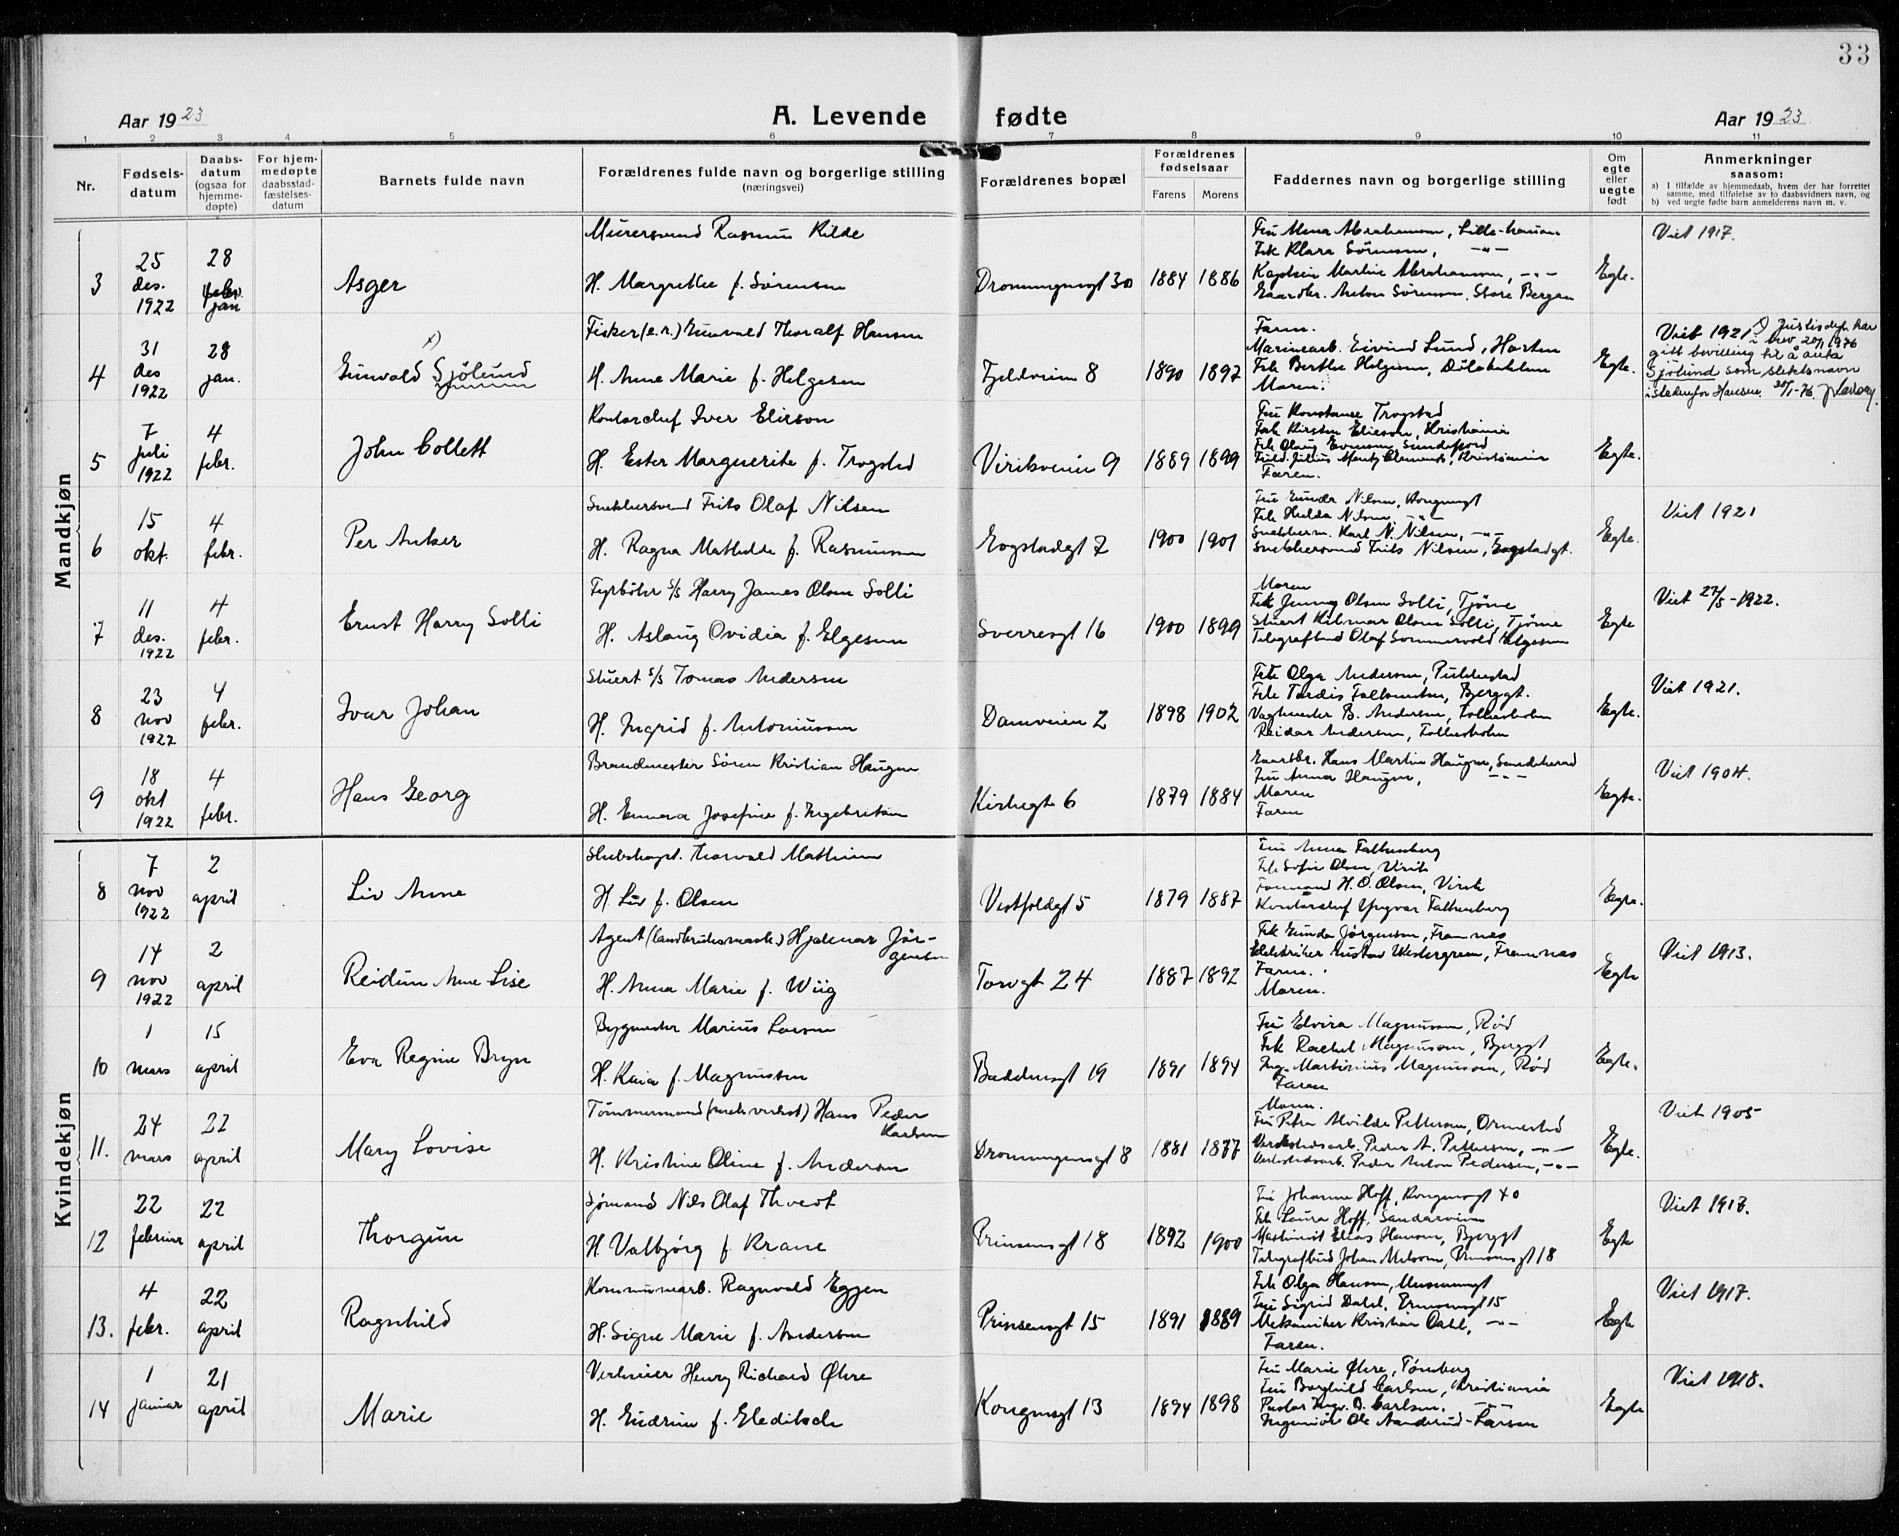 33
Aar 1923
A. Levende fødte
Aar 1923
1 2 3 4 5 6 7 8 9 10 11
Nr.
Fødsels-
datum
Daabs-
datum
(ogsaa for
hjemme-
døpte)
For hjem-
medøpte
daabsstad-
fæstelses-
datum
Barnets fulde navn
Forældrenes fulde navn og borgerlige stilling
(næringsvei)
Forældrenes bopæl
Forældrenes
fødselsaar
Farens Morens
Faddernes navn og borgerlige stilling
Om
egte
eller
uegte
født
Anmerkninger
saasom:
a) I tilfælde av hjemmedaab, hvem der har forrettet
samme, med tilføielse av to daabsvidners navn, og
b) ved uegte fødte barn anmelderens navn m. v.
Mandkjøn
3
25
des.
1922
28
jan
Asger
Murersvend Rasmus Kilde
H. Margrethe f. Sørensen
Dronningensgt 30
1884 1886
Frk Klara Sørensen, -"-
Kaptein Martin Abrahamsen, -"-
Gaardbr. Anton Sørensen, Store Bergan
Egte.
Viet 1917.
4
31
des
1922
28
jan.
Gunvald Sjølund
x)
Fisker (e.r.) Gunvald Thoralf Hansen
H. Anne Marie f. Helgesen
Fjeldveien 8
1890 1897
Faren.
Marinearb. Eivind Lund, Horten
Frk Berthe Helgesen,
Moren.
Egte.
Viet 1921 x) Justisdept. har
i brev 20/1 1976
gitt bevilling til å anta
Sjølund som slektsnavn
istedenfor Hansen. 30/1-76.
5
7
juli
1922
4
febr.
John Collett
Kontorchef Iver Elieson
H. Ester Marguerite f. Trogstad
Virikveien 9
1889 1899
Fru Konstanse Trogstad
Frk Kirsten Elieson, Kristiania
Faren.
Egte.
6
15
okt.
4
febr.
Per Anker
Snekkersvend Frits Olaf Nilsen
H. Ragna Mathilde f. Rasmussen
Gogstadgt 7
1900 1901
Fru Gunda Nilsen, Kongensgt
Frk Hulda Nilsen -"-
Snekkerm. Karl N. Nilsen, -"-
Snekkersvend Frits Nilsen, Gogstadgt.
Egte.
Viet 1921
7
11
des.
1922
4
febr.
Ernst Harry Solli
Fyrbøter s/s Harry James Olsen Solli
H. Aslaug Ovidia f. Elgesem
Sverresgt 16
1900 1899
Moren
Frk Jenny Olsen Solli, Tjøme
Stuert Hilmar Olsen Solli, Tjøme
Telegrafbud Olaf Sommervold Elgesem
Egte
Viet 27/5-1922.
8
23
nov
1922
4
febr.
Ivar Johan
Stuert s/s Tomas Andersen
H. Ingrid f. Antoniussen
Damveien 2
1898 1902
Frk Olga Andersen, Pukkestad
Vagtmester B. Andersen, Tollersholm
Reidar Andersen, Tollersholm
Egte.
Viet 1921.
9
18
okt
1922
4
febr.
Hans Georg
Brandmester Søren Kristian Haugen
H. Emma Josefine f. Ingebretsen
Kirkegt 6
1879 1884
Gaardbr. Hans Martin Haugen, Sandeherred
Fru Anna Haugen, -"-
Moren
Faren
Egte.
Viet 1904.
Kvindekjøn
8
7
nov
1922
2
april
Liv Anne
Skibskapt. Thorvald Mathisen
H. Liv f. Olsen
Vestfoldgt 5
1879 1887
Fru Anna Falkenberg
Frk Sofie Olsen, Virik
Formand H. O. Olsen, Virik
Kontorchef Yngvar Falkenberg
Egte.
9
14
nov
1922
2
april
Reidun Anne Lise
Agent (landbruksmask.) Hjalmar Jør-
gensen
H. Anna Marie f. Wiig
Torvgt 24
1887 1892
Frk Gunda Jørgensen, Framnæs
Elektriker Gustav Westergren, Framnæs
Faren.
Moren.
Egte
Viet 1913.
10
1
mars
15
april
Eva Regine Bryn
Bygmester Marius Larsen
H. Kaia f. Magnussen
Baddensgt 19
1891 1894
Fru Elvira Magnussen, Rød
Frk Rachel Magnussen, Bjerggt
Ing. Martinius Magnussen, Rød
Faren
Egte.
11.
24
mars
22
april
Mary Lovise
Tømmermand (mek. verkst) Hans Peder
Karlsen
H. Kristine Oline f. Andersen
Dronningensgt 8
1881 1877
Moren.
Fru Petra Alvilde Pettersen, Ormestad
Verkstedsarb. Peder A. Pettersen, -"-
Verkstedsarb. Peder Anton Pedersen, -"-
Egte.
Viet 1905
12
22
februar
22
april
Thorgun
Sjømand Nils Olaf Thvedt
H. Valbjørg f. Krane
Prinsensgt 18
1892 1900
Fru Johanne Hoff, Kongensgt 40
Frk Laura Hoff, Sandarveien
Maskinist Elias Hansen, Bjerggt
Telegrafbud Johan Melsom, Prinsensgt 18
Egte
Viet 1917.
13.
4
febr.
22
april
Ragnhild
Kommunearb. Ragnvald Eggen
H. Signe Marie f. Andersen
Prinsensgt 15
1891 1889
Frk Olga Hansen, Museumsgt
Fru Sigrid Dahl, Prinsensgt 15
Mekaniker Kristian Dahl, -"-
Faren.
Egte
Viet 1917.
14
1
januar
21
april
Marie
Verkseier Henry Richard Øhre
H. Gudrun f. Gleditsch
Kongensgt 13
1894 1898
Fru Marie Øhre, Tønsberg
Fru Borghild Carlsen, Kristiania
Pastor Ingv. D. Carlsen. -"-
Ingeniør Ole Aanderud-Larsen
Egte
Viet 1918.